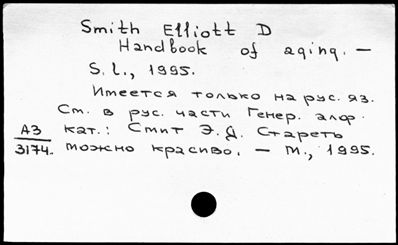 Smith Elliott D
Handbook of aging. —
S. l., 1995.
Имеется только на рус. яз.
См. в рус. части Генер. алф.
АЗ кат.: Смит Э. Д. Стареть
3174. можно красиво. — М., 1995.